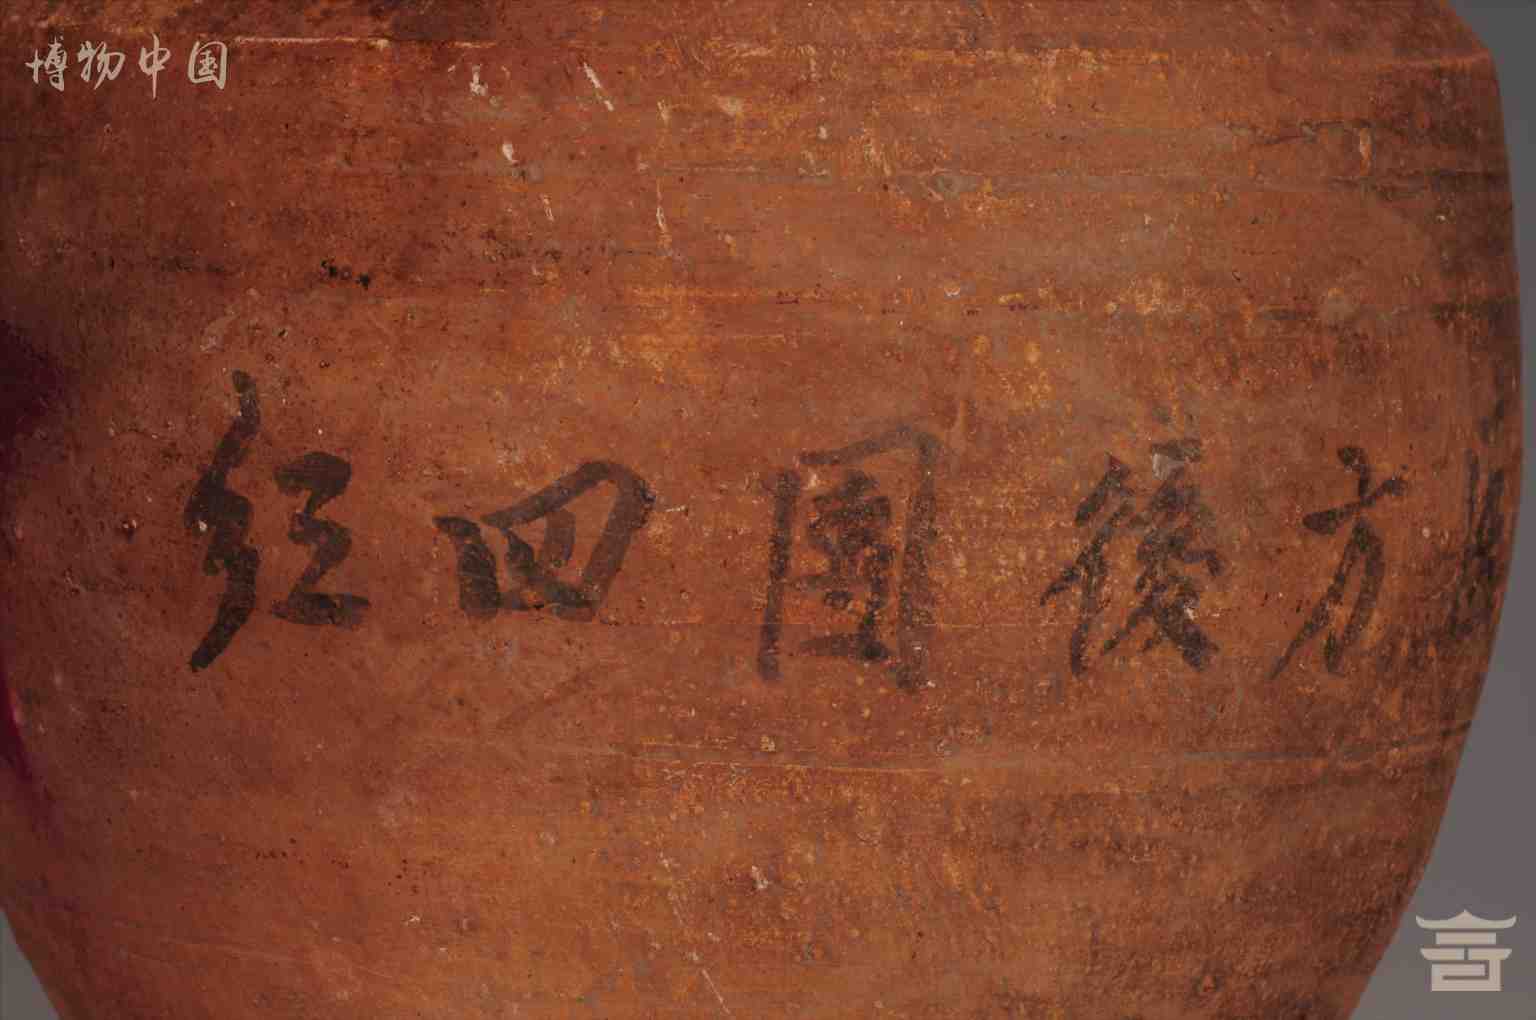 博物中国
红四團後方